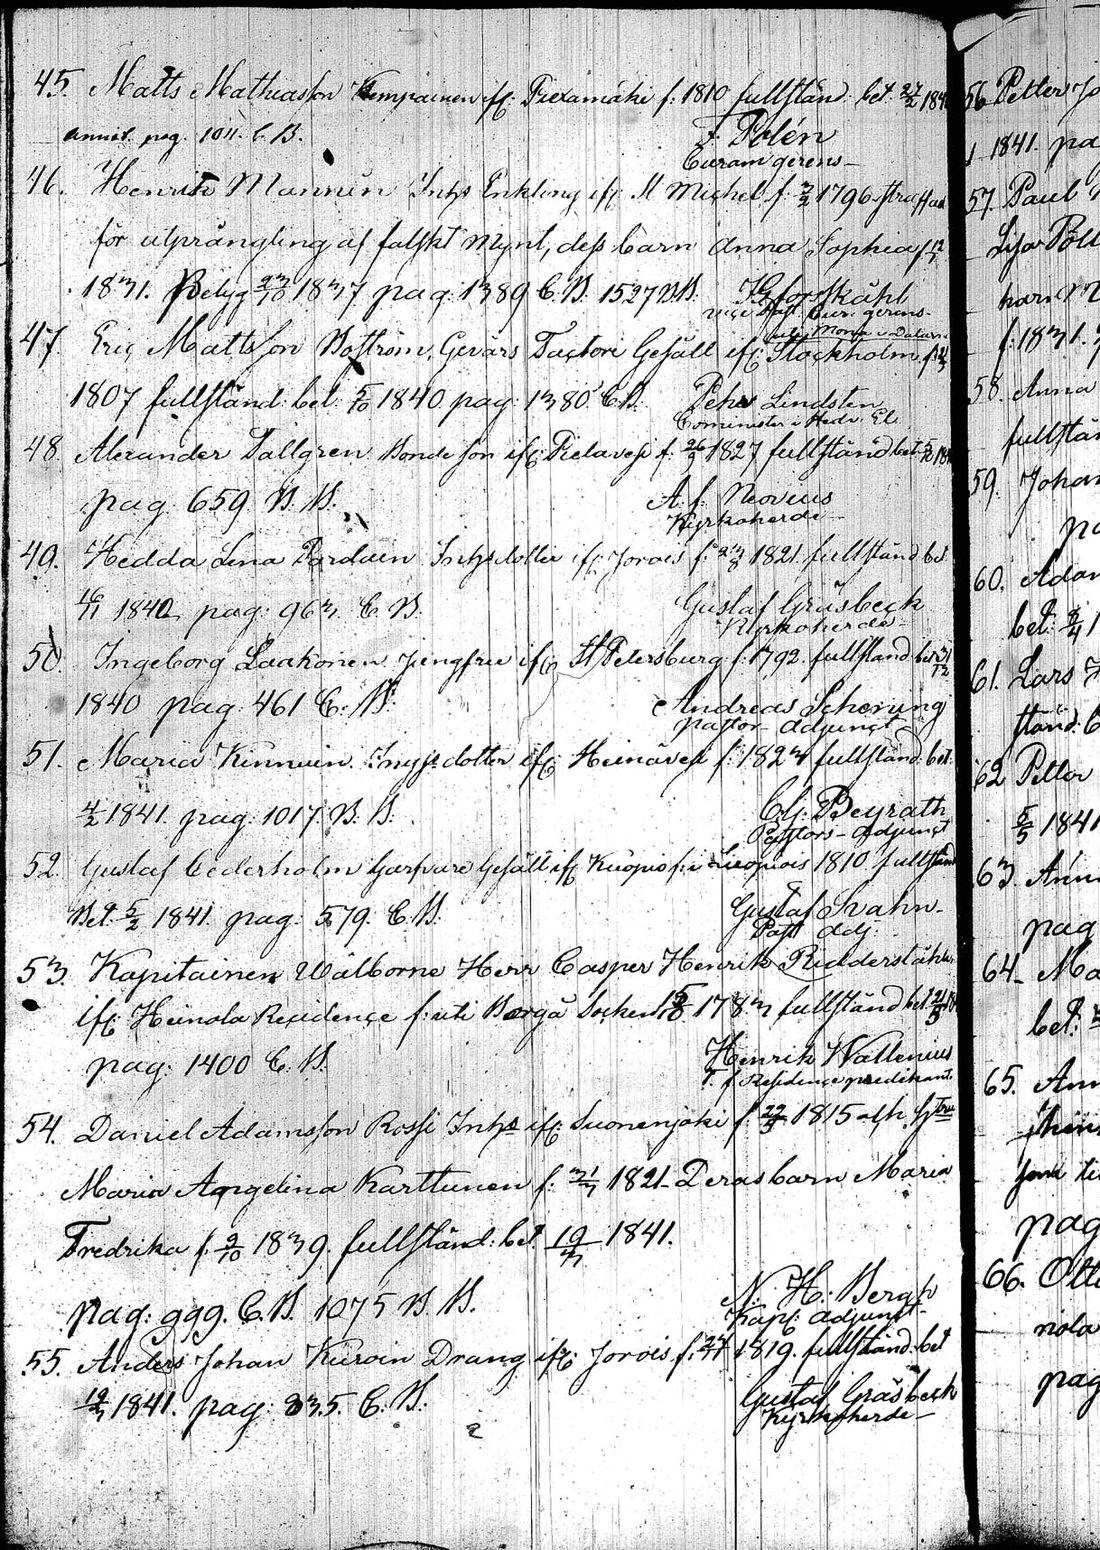 45. Matts Mathiasson Kempainen ifr: Piexämäki f: 1810 fullständ: bet. 27/2 184
annot. pag. 1011. C. B.
F. Polén
Curam gerens
46. Henrik Mannin Inhs Enkling ifr: St Michel f. 3/2 1796 straffad
för utprångling af falskt Mynt, dess barn Anna Sophia f: 12/3
1831. Betyg 23/10 1837 pag: 1389 C. B. 1527 B.B.
J G Forsskåhl
vice Past. Cur. gerens
47 Eric Mattsson Boström, Gevärs Factori Gesäll ifr: Stockholm f:
uti Mora i Dalarn
1807 fullständ: bet: 5/10 1840 pag: 1380 C B.
Pehr Lindsten
Cominister i Hedv. El.
48. Alexander Dallgren Bonde Son ifr: Pielavesi f: 26/3 1827 fullständ bet. 5/10 184
pag 659 B. B.
A. F. Neovius
Kyrkoherde
49. Hedda Lena Pardain Inhs dotter ifr: Jorois f: 23/8 1821. fullständ bet
16/11 1840 pag: 963 C. B.
Gustaf Gräsbeck
Kyrkoherde
50 Ingeborg Laakonen Jungfru ifr: St Petersburg f: 1792. fullständ: bet 31/12
1840 pag: 461 C. B.
Andreas Scherung
pastor adjunct
51. Maria Kinnuin Inhysdotter ifr: Heinävesi f: 1823 fullständ: bet:
4/2 1841. pag: 1017 B. B.
C. G. Beyrath
Pastors-Adjunct
52. Gustaf Cederholm Garfvare Gesäll ifr Kuopio f: i Kuopio 1810. fullständ
Bet. 5/2 1841. pag: 579. C. B.
Gustaf Svahn
Past. adj.
53. Kapitainen Wälborne Herr Casper Henrik Ridderståhle
ifr: Heinola Recidence f: uti Borgå Socken 15/8 1783 fullständ bet 21/3 18
pag: 1400 C. B.
Henrik Wallenius
T. f. Residence predikant
54. Daniel Adamsson Rossi Inhs ifr: Suonenjoki f: 22/3 1815 och Hstru
Maria Angelina Karttunen f: 31/7 1821. Deras barn Maria
Fredrika f. 9/10 1839. fullständ: bet. 19/3 1841.
pag: 999. C. B. 1075 B. B.
N. H. Bergh
Kapl: adjunct
55. Anders Johan Kuroin Dräng ifr: Jorois f: 24/11 1819. fullständ. bet
19/3 1841. pag: 835. C. B.
Gustaf Gräsbeck
Kyrkoherde
56 Petter Jo
1841. pag
57. Paul
Lisa Pöll
barn
f: 1831.
58. Anna
fullständ
59. Johan
pa
60. Adam
bet: 8/4 1
61. Lars
ständ: b
62 Petter
5/5 1841
63. Anna
pag
64. Ma
bet:
65. Ann
pag
66. Otto
niola
pag